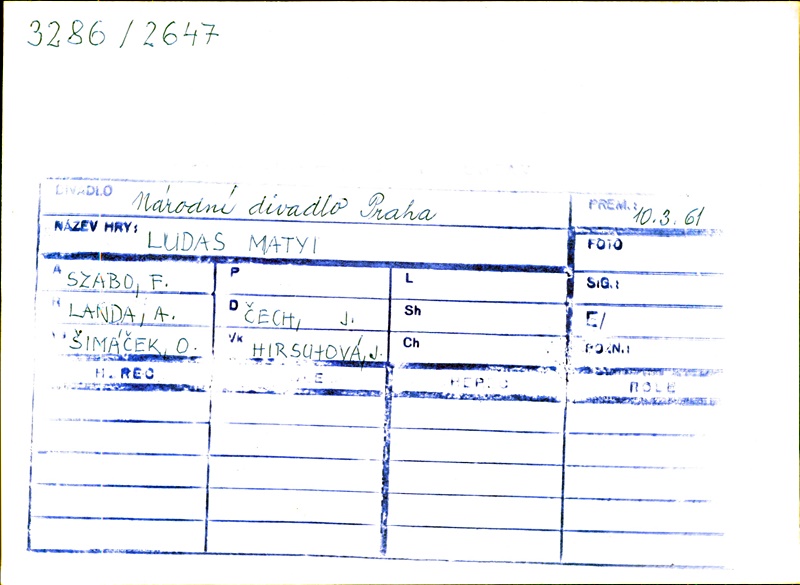 3286/2647
DIVADLO Národní divadlo Praha PREM.: 10.3.61
NÁZEV HRY: LUDAS MATYI FOTO
A SZABO, F. P L SIG.:
R LANDA, A. D ČECH, J. Sh E/
ŠIMÁČEK, O. V/k HIRSCHOVÁ, J. Ch POZN.:
HEREC HEREC ROLE